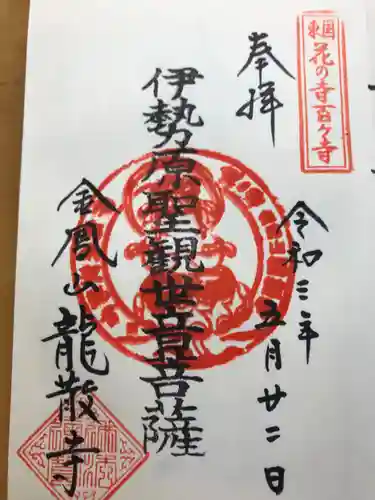 東国
花の寺百ヶ寺
奉拝
令和三年
五月廿二日
伊勢原聖観世音菩薩
金鳳山
龍散寺